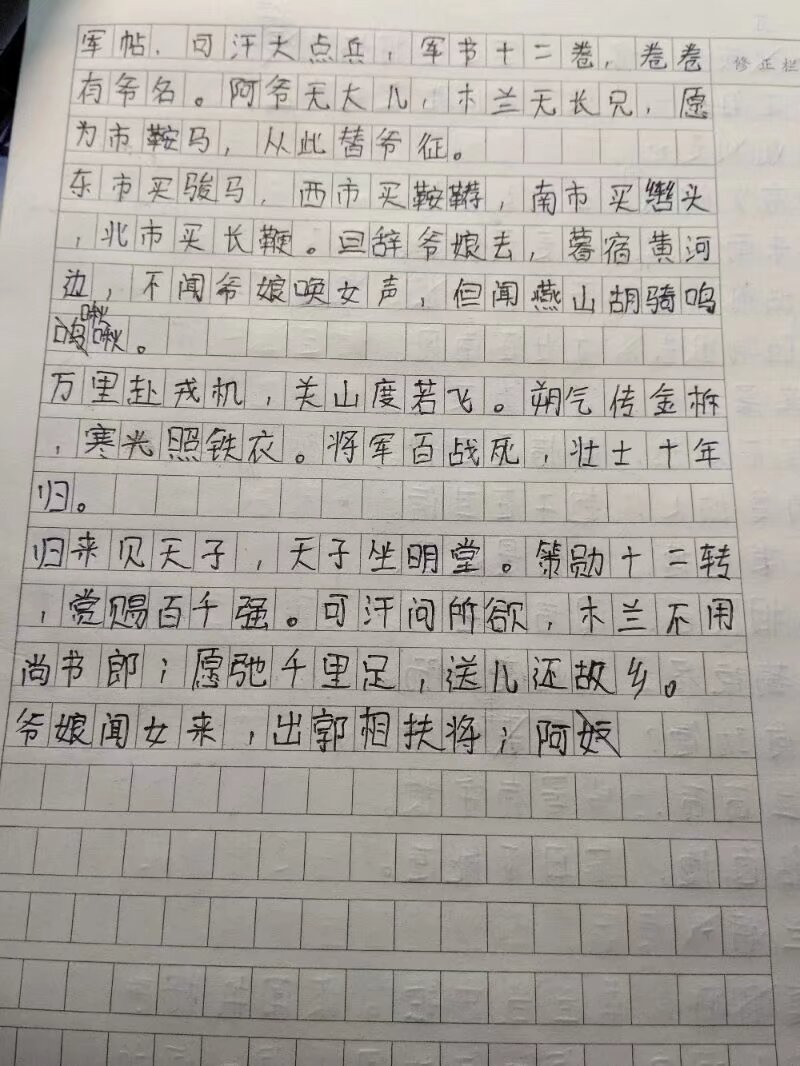 军帖，可汗大点兵，军书十二卷，卷卷
修正栏
有爷名。阿爷无大儿，木兰无长兄，愿
为市鞍马，从此替爷征。
东市买骏马，西市买鞍鞯，南市买辔头
，北市买长鞭。旦辞爷娘去，暮宿黄河
边，不闻爷娘唤女声，但闻燕山胡骑鸣
啾啾。
万里赴戎机，关山度若飞。朔气传金柝
，寒光照铁衣。将军百战死，壮士十年
归。
归来见天子，天子坐明堂。策勋十二转
，赏赐百千强。可汗问所欲，木兰不用
尚书郎；愿驰千里足，送儿还故乡。
爷娘闻女来，出郭相扶将；阿